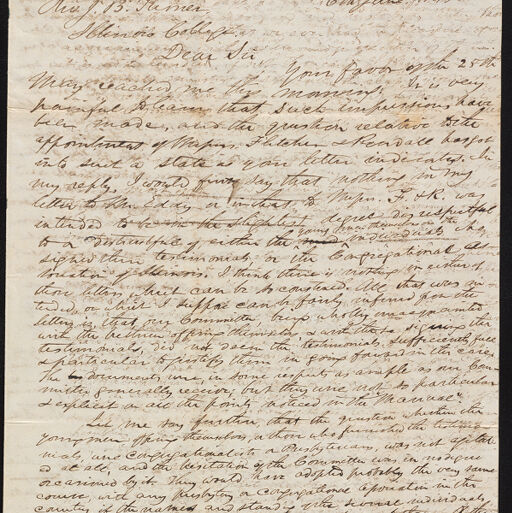 Rev. J. B. Turner
Illinois College
Dear Sir,
Your favor of the 25th
May reached me this morning. It is very
painful to learn that such impressions have
been made, and the question relative to the
appointment of Messrs. Fletcher & Kendall has got
into such a state as your letter indicates. In
my reply, I would say that nothing in my
letter to Mr. Eddy or in that to Messrs. F. & K. was
intended to be in the slightest degree disrespectful
to or distrustful of, either the individuals who
signed their testimonials, or the Congregational As-
sociation of Illinois. I think there is nothing in either of
those letters, that can be so construed. All that was in-
tended, or which I suppose can be fairly inferred from the
letters is, that our Committee being wholly unacquainted
with the brethren offering themselves & with those signing the
testimonials, did not deem the testimonials sufficiently full
& particular to justify them in going forward in the case.
The documents were, in some respects as ample as our Com-
mittee generally receive, but they were not so particular
& explicit on all the points noticed in the "Manual".
Let me say further, that the question whether the
young men offering themselves, or those who furnished the testimo-
nials, were Congregationalists or Presbyterians, was not agitated
at all, and the hesitation of the Committee was in no degree
occasioned by it. They would have adopted probably the very same
course, with any presbytery or congregational association in the
country, if the names and standing of the several individuals,